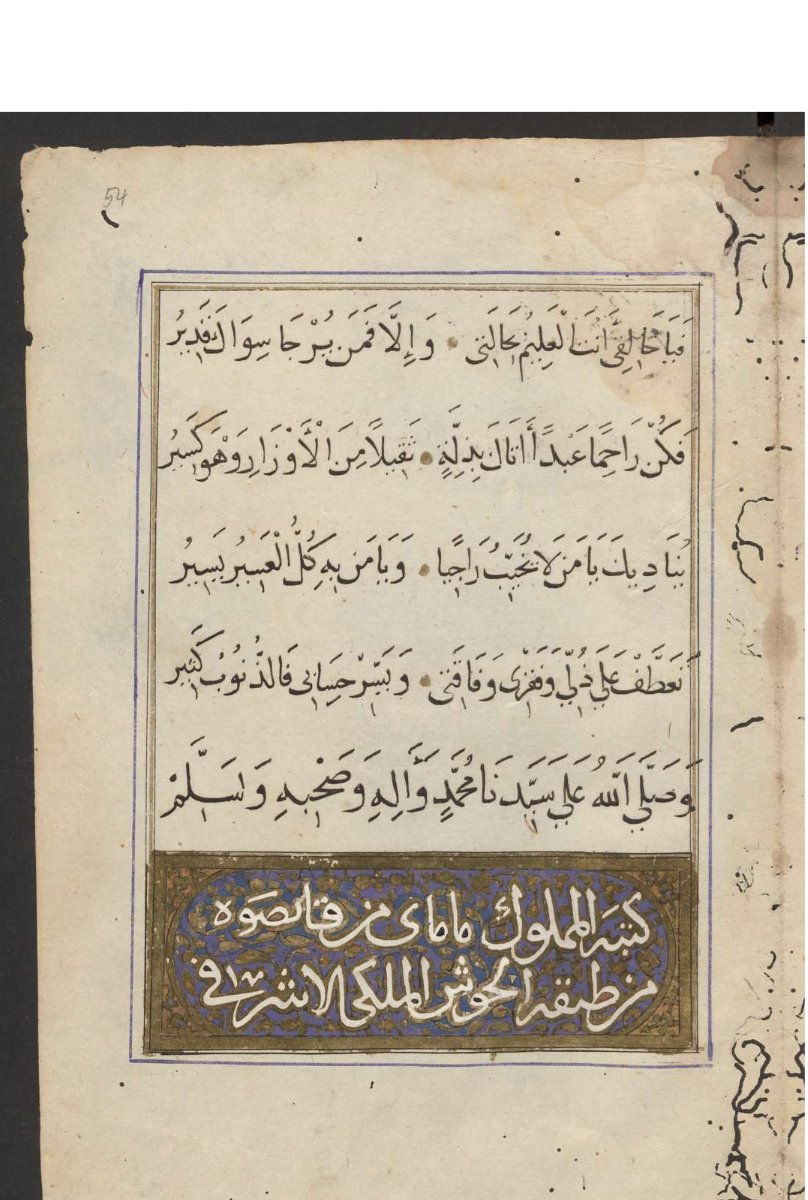 54
فَيَا خَالِقِي أَنْتَ الْعَلِيمُ بِحَالَتِي وَإِلَّا فَمَن يُرْجَا سِوَاكَ قَدِيرُ
فَكُنْ رَاحِمًا عَبْدًا أَتَاكَ بِذِلَّةٍ ثَقِيلاً مِنَ الْأَوْزَارِ وَهْوَ كَسِيرُ
يُنَادِيكَ يَا مَن لَا يُخَيِّبُ رَاجِيًا وَيَا مَن بِهِ كُلُّ الْعَسِيرِ يَسِيرُ
تَعَطَّفْ عَلَى ذُلِّي وَفَقْرِي وَفَاقَتِي وَيَسِّرْ حِسَابِي فَالذُّنُوبُ كَثِيرُ
وَصَلَّى اللهُ عَلَى سَيِّدِنَا مُحَمَّدٍ وَآلِهِ وَصَحْبِهِ وَسَلَّمْ
كتبه المملوك ماماى من قانصوه
من طبقه الحوش الملكى الاشرفى